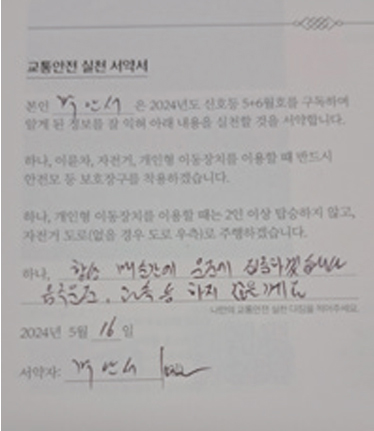 교통안전 실천 서약서
본인 은 2024년도 신호등 5+6월호를 구독하여
알게 된 정보를 잘 익혀 아래 내용을 실천할 것을 서약합니다.
하나, 이륜차, 자전거, 개인형 이동장치를 이용할 때 반드시
안전모 등 보호장구를 착용하겠습니다.
하나, 개인형 이동장치를 이용할 때는 2인 이상 탑승하지 않고,
자전거 도로(없을 경우 도로 우측)로 주행하겠습니다.
하나, 항상 매순간에 운전에 집중하겠습니다
음주운전, 과속 등 하지 않을께요
나만의 교통안전 실천 다짐을 적어주세요.
2024년 5월 16일
서약자: